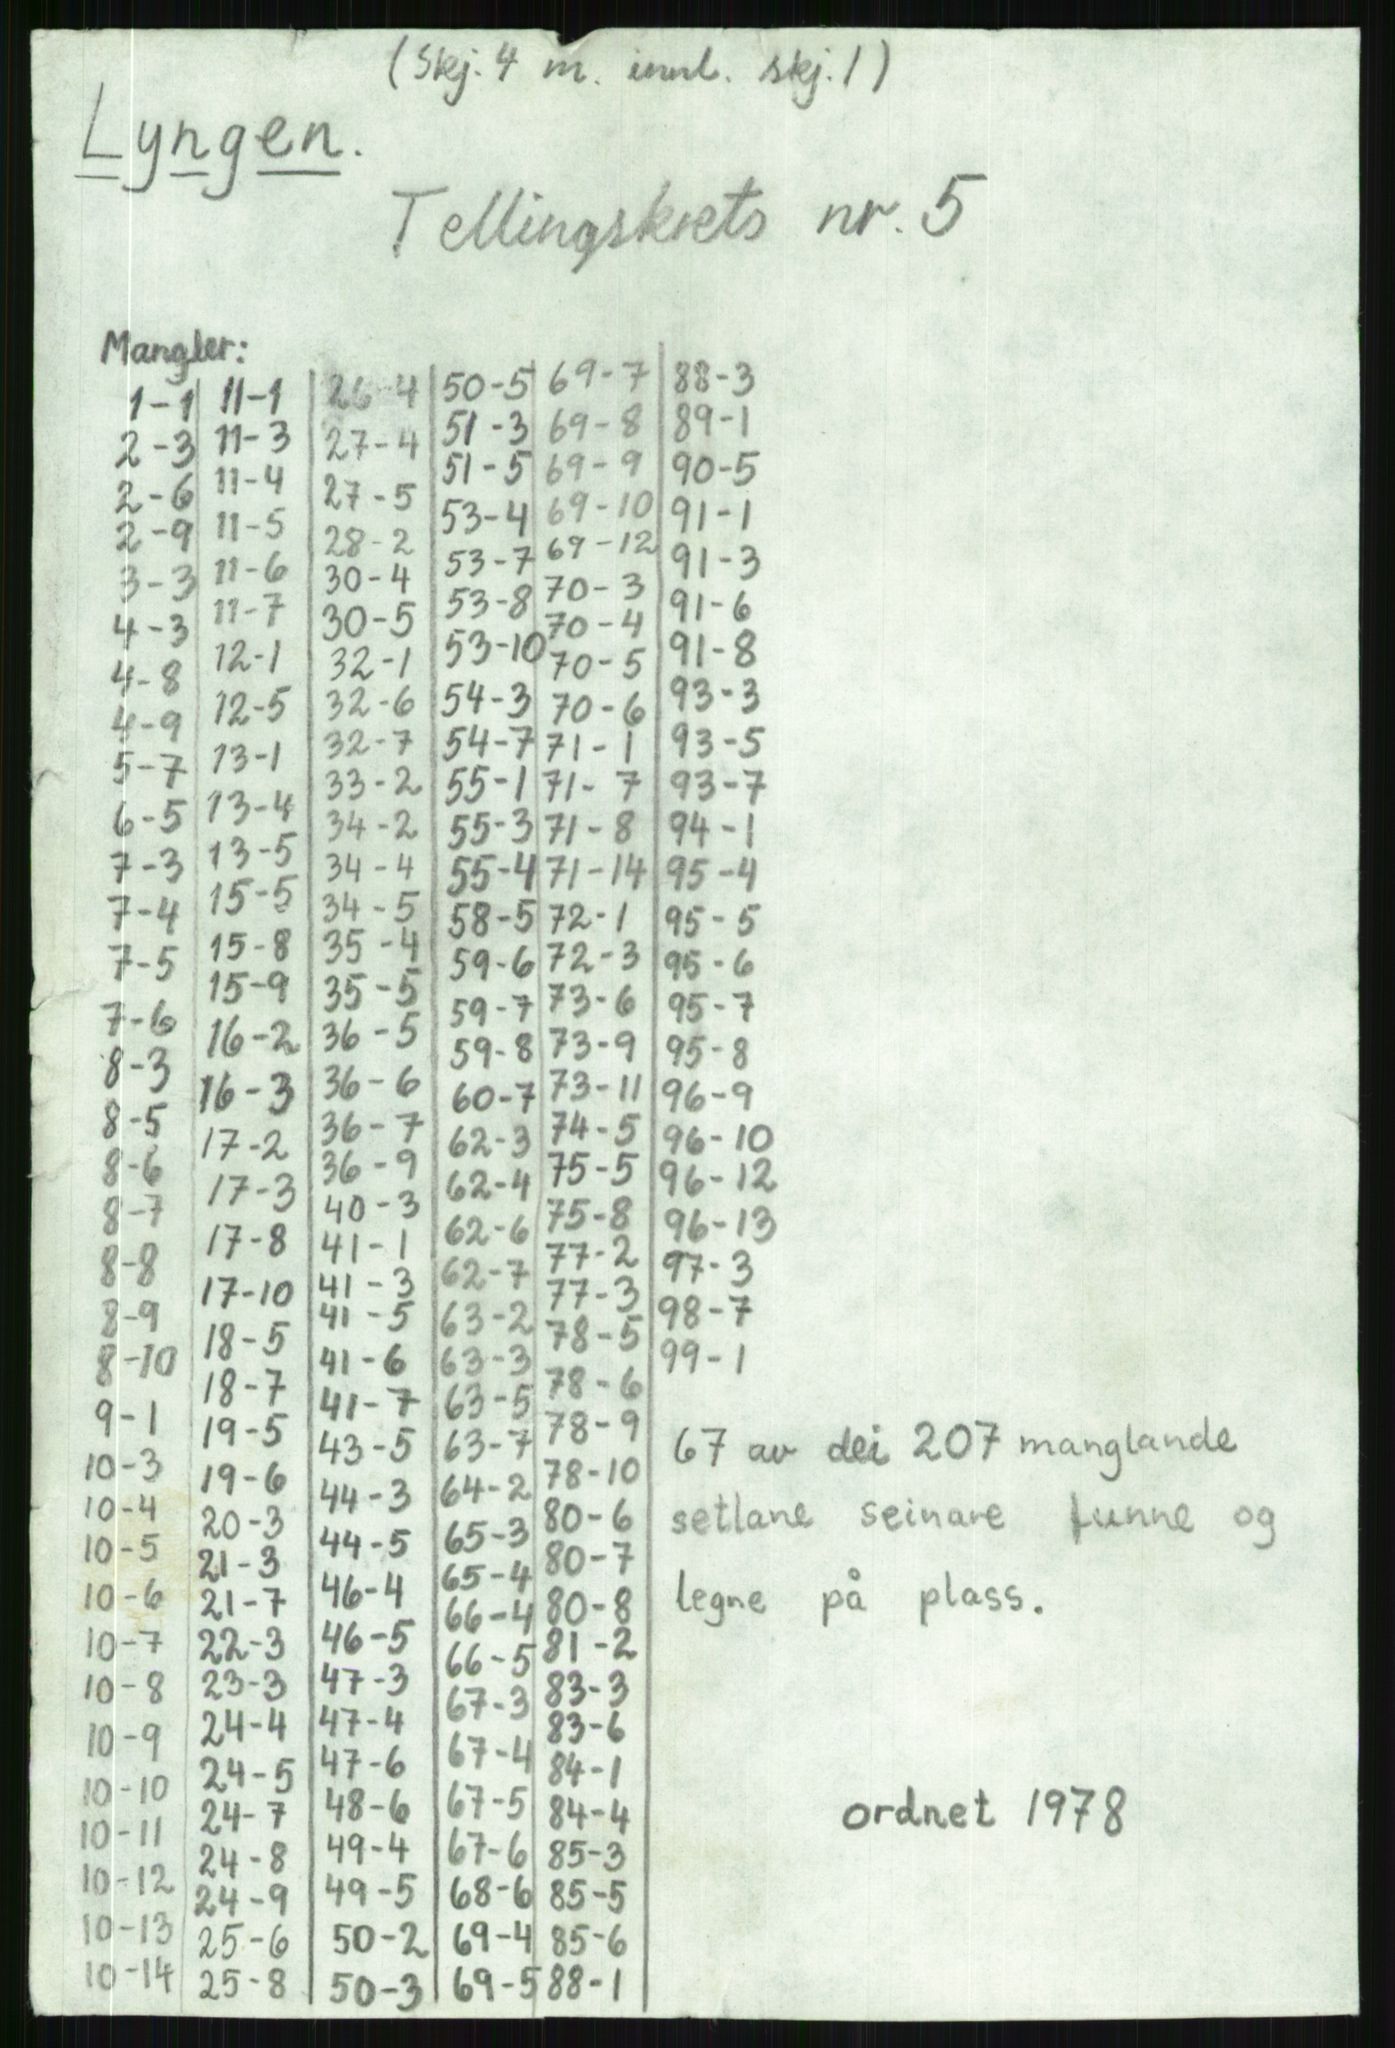 (Skj. 4 m. innl. skj. 1)
Lyngen.
Tellingskrets nr. 5
Mangler:
1-1
2-3
2-6
2-9
3-3
4-3
4-8
4-9
5-7
6-5
7-3
7-4
7-5
7-6
8-3
8-5
8-6
8-7
8-8
8-9
8-10
9-1
10-3
10-4
10-5
10-6
10-7
10-8
10-9
10-10
10-11
10-12
10-13
10-14
11-1
11-3
11-4
11-5
11-6
11-7
12-1
12-5
13-1
13-4
13-5
15-5
15-8
15-9
16-2
16-3
17-2
17-3
17-8
17-10
18-5
18-7
19-5
19-6
20-3
21-3
21-7
22-3
23-3
24-4
24-5
24-7
24-8
24-9
25-6
25-8
26-4
27-4
27-5
28-2
30-4
30-5
32-1
32-6
32-7
33-2
34-2
34-4
34-5
35-4
35-5
36-5
36-6
36-7
36-9
40-3
41-1
41-3
41-5
41-6
41-7
43-5
44-3
44-5
46-4
46-5
47-3
47-4
47-6
48-6
49-4
49-5
50-2
50-3
50-5
51-3
51-5
53-4
53-7
53-8
53-10
54-3
54-7
55-1
55-3
55-4
58-5
59-6
59-7
59-8
60-7
62-3
62-4
62-6
62-7
63-2
63-3
63-5
63-7
64-2
65-3
65-4
66-4
66-5
67-3
67-4
67-5
67-6
68-6
69-4
69-5
69-7
69-8
69-9
69-10
69-12
70-3
70-4
70-5
70-6
71-1
71-7
71-8
71-14
72-1
72-3
73-6
73-9
73-11
74-5
75-5
75-8
77-2
77-3
78-5
78-6
78-9
78-10
80-6
80-7
80-8
81-2
83-3
83-6
84-1
84-4
85-3
85-5
85-6
88-1
88-3
89-1
90-5
91-1
91-3
91-6
91-8
93-3
93-5
93-7
94-1
95-4
95-5
95-6
95-7
95-8
96-9
96-10
96-12
96-13
97-3
98-7
99-1
67 av dei 207 manglande
setlane seinare funne og
legne på plass.
ordnet 1978